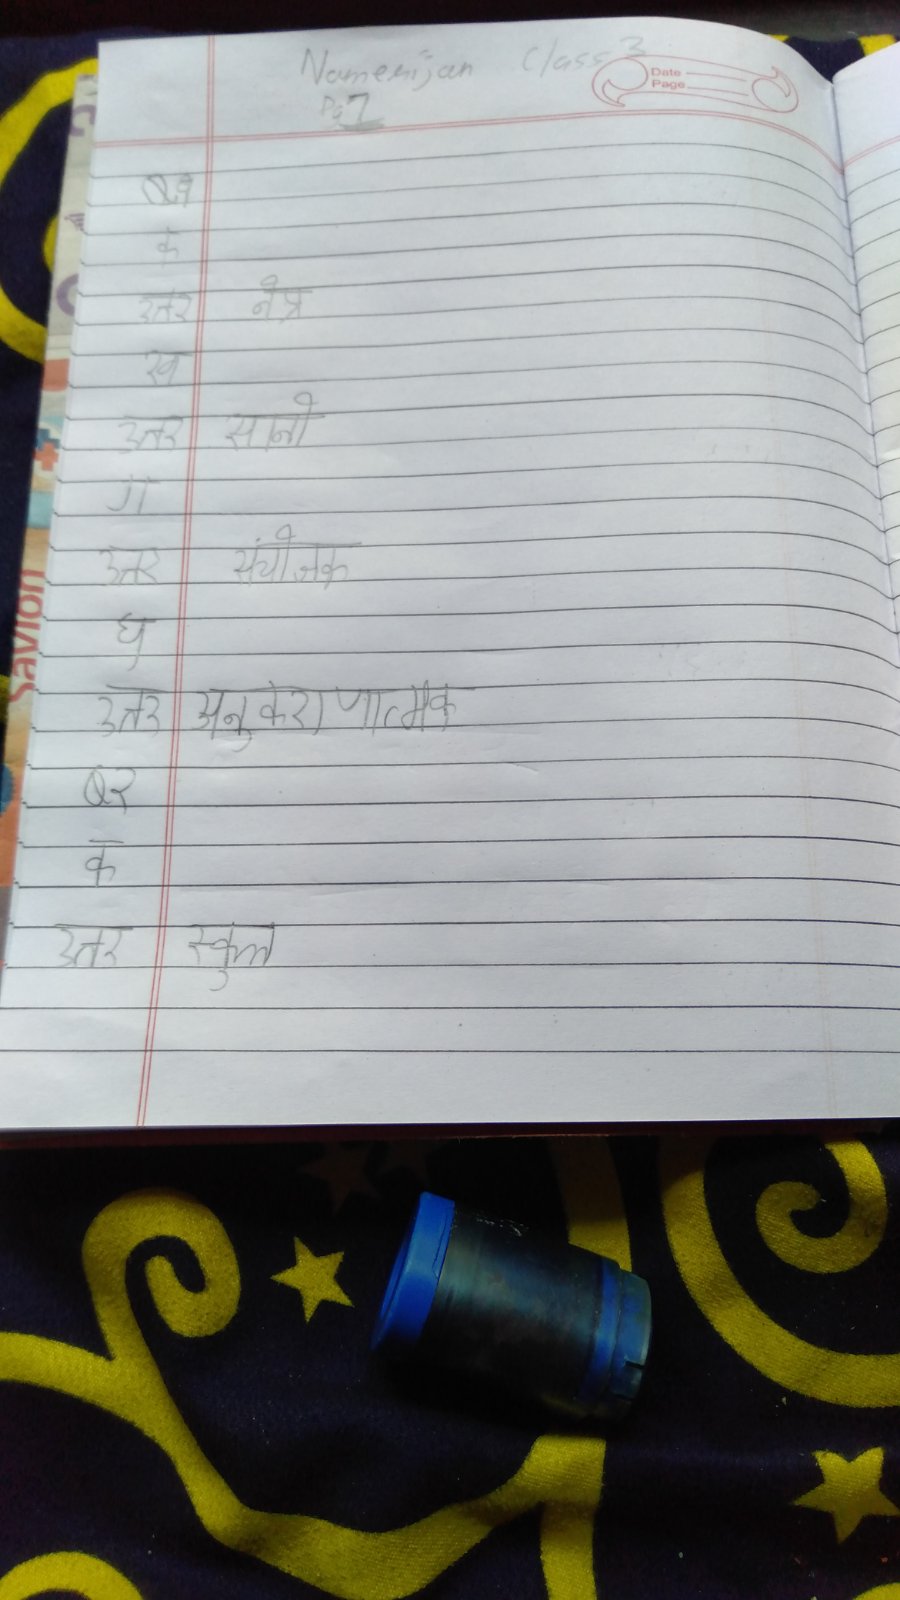 Name rijan Class 3
Date
Page
Pg 7
Q१
क
उतर नेत्र
ख
उतर सानो
ग
उतर संयोजक
घ
उतर अनुकरणात्मक
Q२
क
उतर स्कुल
Savlon